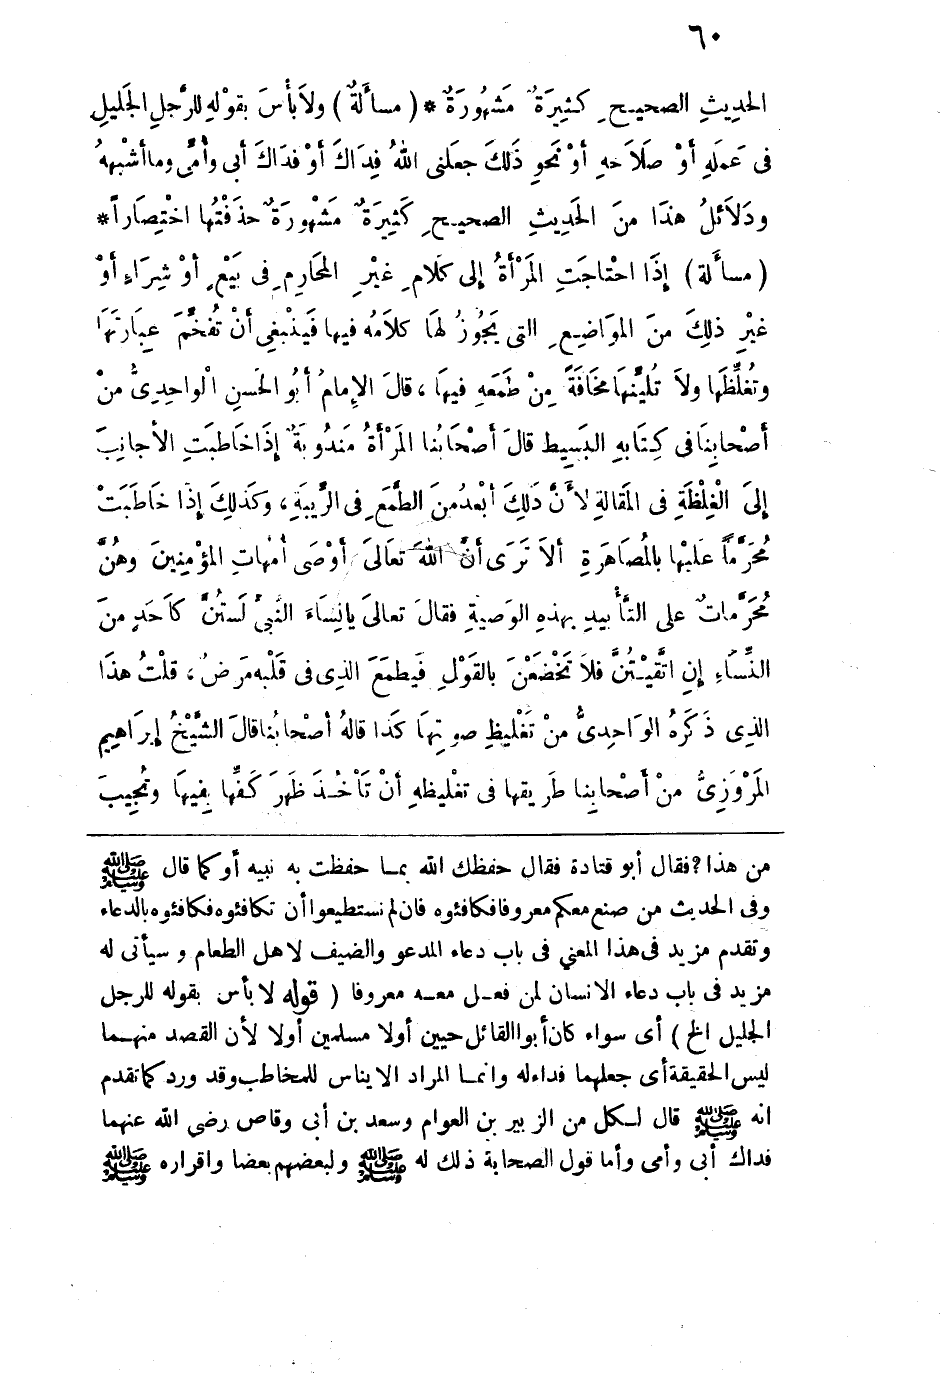 ٦٠
الحدِيثِ الصحيحِ كثِيرَةٌ مَشهُورَةٌ * ( مسأَلةٌ ) ولاَ بأْسَ بقوْلهِ للرَّجلِ الجَليلِ
فى عَملَهِ أوْ صَلاَحهِ أوْ نحوِ ذَلكَ جعلَنى اللهُ فِدَاكَ أوْ فدَاكَ أبى وأُمِّى وما أشْبههُ
ودَلاَئلُ هذَا منَ الحَديثِ الصحيحِ كَثِيرَةٌ مَشْهُورَةٌ حذَفْتُها اخْتِصَاراً *
( مسأَلة ) إِذَا احْتاجَتِ المَرْأةُ إلى كلَامِ غيْرِ المحَارِمِ فى بَيْعٍ أوْ شِرَاءٍ أوْ
غيْرِ ذلِكَ منَ الموَاضِعِ التى يَجُوزُ لهَا كلاَمُه فيها فَينْبغِى أنْ تُفخَّمَ عِبارَتَهَا
وتُغلِّظَها ولاَ تُليِّنَها مخَافَةً مِنْ طَمَعَهِ فيهَا ، قالَ الإِمامُ أبُو الحَسنِ الْواحِدِىُّ منْ
أصْحابِنَا فى كِتَابهِ البَسِيط قالَ أصْحَابُنا المَرْأةُ مَندُوبَةٌ إِذَا خَاطبَتِ الأجانِبَ
إلىَ الْغِلْظَةِ فى المَقالةِ لأَنَّ ذَلِكَ أبْعدُ منَ الطَّمَعِ فى الرِّيبَةِ ، وكَذلكَ إِذَا خاطَبَتْ
مُحَرَّماً علَيْها بالمُصَاهَرَةِ ألاَ تَرَى أنَّ اللهَ تعَالىَ أوْصَى أمْهاتِ المؤْمِنِينَ وهُنَّ
مُحَرَّماتٌ على التَّأْبيدِ بهذهِ الوَصيةِ فقالَ تعالىَ يانِسَاءَ النَّبىِّ لَستُنَّ كأَحَدٍ منَ
النِّسَاءِ إِنِ اتَّقيْـتُنَّ فلاَ تَخْضَعْنَ بالقَوْلِ فيَطمَعَ الذِى فى قَلْبهِ مَرَضٌ ، قلْتُ هذَا
الذِى ذَكرَهُ الوَاحِدِىُّ منْ تَغْليظِ صوتِهَا كَذا قالهُ أصْحابُنا قالَ الشَّيْخُ إبرَاهيمِ
المَرْوَزِىُّ منْ أصْحابِنا طَرِيقها فى تغْليظهِ أنْ تَأْخُـذَ ظَهرَ كَفِّها بِفِيهَا وتُجِيبَ
من هذا ؟ فقال أبو قتادة فقال حفظك الله بمـا حفظت به نبيه أو كما قال ﷺ
وفى الحديث من صنع معكم معروفا فكافئوه فان لم تستطيعوا أن تكافئوه فكافئوه بالدعاء
وتقدم مزيد فى هذا المعني فى باب دعاء المدعو والضيف لاهل الطعام وسيأتى له
مزيد فى باب دعاء الانسان لمن فعـل معـه معروفا ( قوله لا بأس بقوله للرجل
الجليل الخ ) أى سواء كان أبوا القائل حيين أولا مسلمين أولا لأن القصد منهـما
ليس الحقيقة أى جعلهما فداء له وانمـا المراد الايناس للمخاطب وقد ورد كما تقدم
انه ﷺ قال لـكل من الزبير بن العوام وسعد بن أبى وقاص رضى الله عنهما
فداك أبى وأمى وأما قول الصحابة ذلك له ﷺ ولبعضهم بعضا واقراره ﷺ